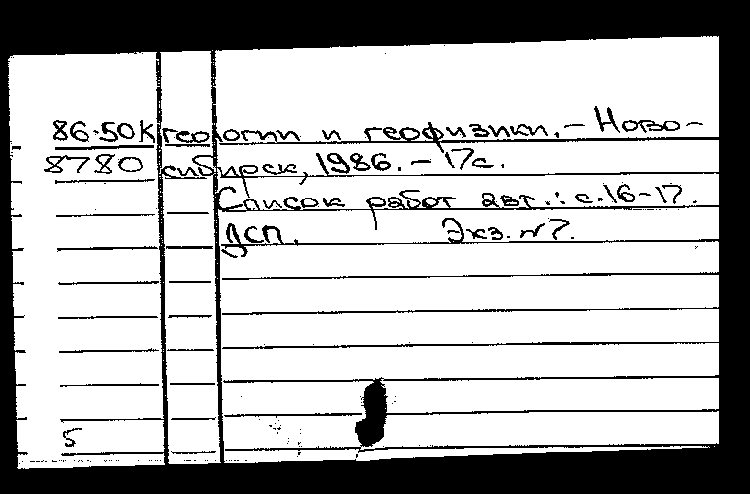 86-50К геологии и геофизики. – Ново-
8780 сибирск, 1986. – 17с.
Список работ авт.: с.16-17.
ДСП. Экз. №7.
5